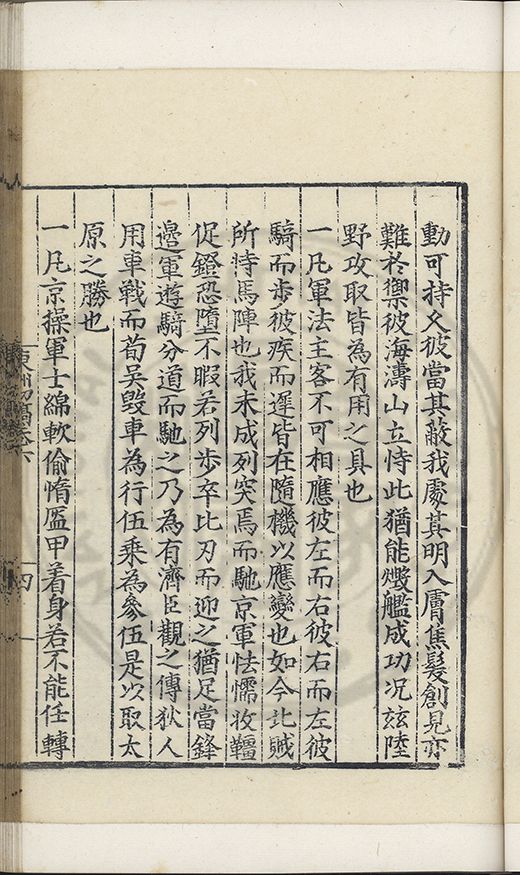 動可持久彼當其蔽我處其明入膚焦髮創見亦
難於禦彼海濤山立恃此猶能燬艦成功况玆陸
野攻取皆為有用之具也
一凡軍法主客不可相應彼左而右彼右而左彼
騎而步彼疾而遲皆在隨機以應變也如今北賊
所恃馬陣也我未成列突焉而馳京軍怯懦收韁
促鐙恐墮不暇若列步卒比刃而迎之猶足當鋒
邊軍遊騎分道而馳之乃為有濟臣觀之傳狄人
用車戰而荀吳毀車為行伍乘為參伍是以取太
原之勝也
一凡京操軍士綿軟偷惰盔甲着身若不能任轉
東洲初稿卷六
四